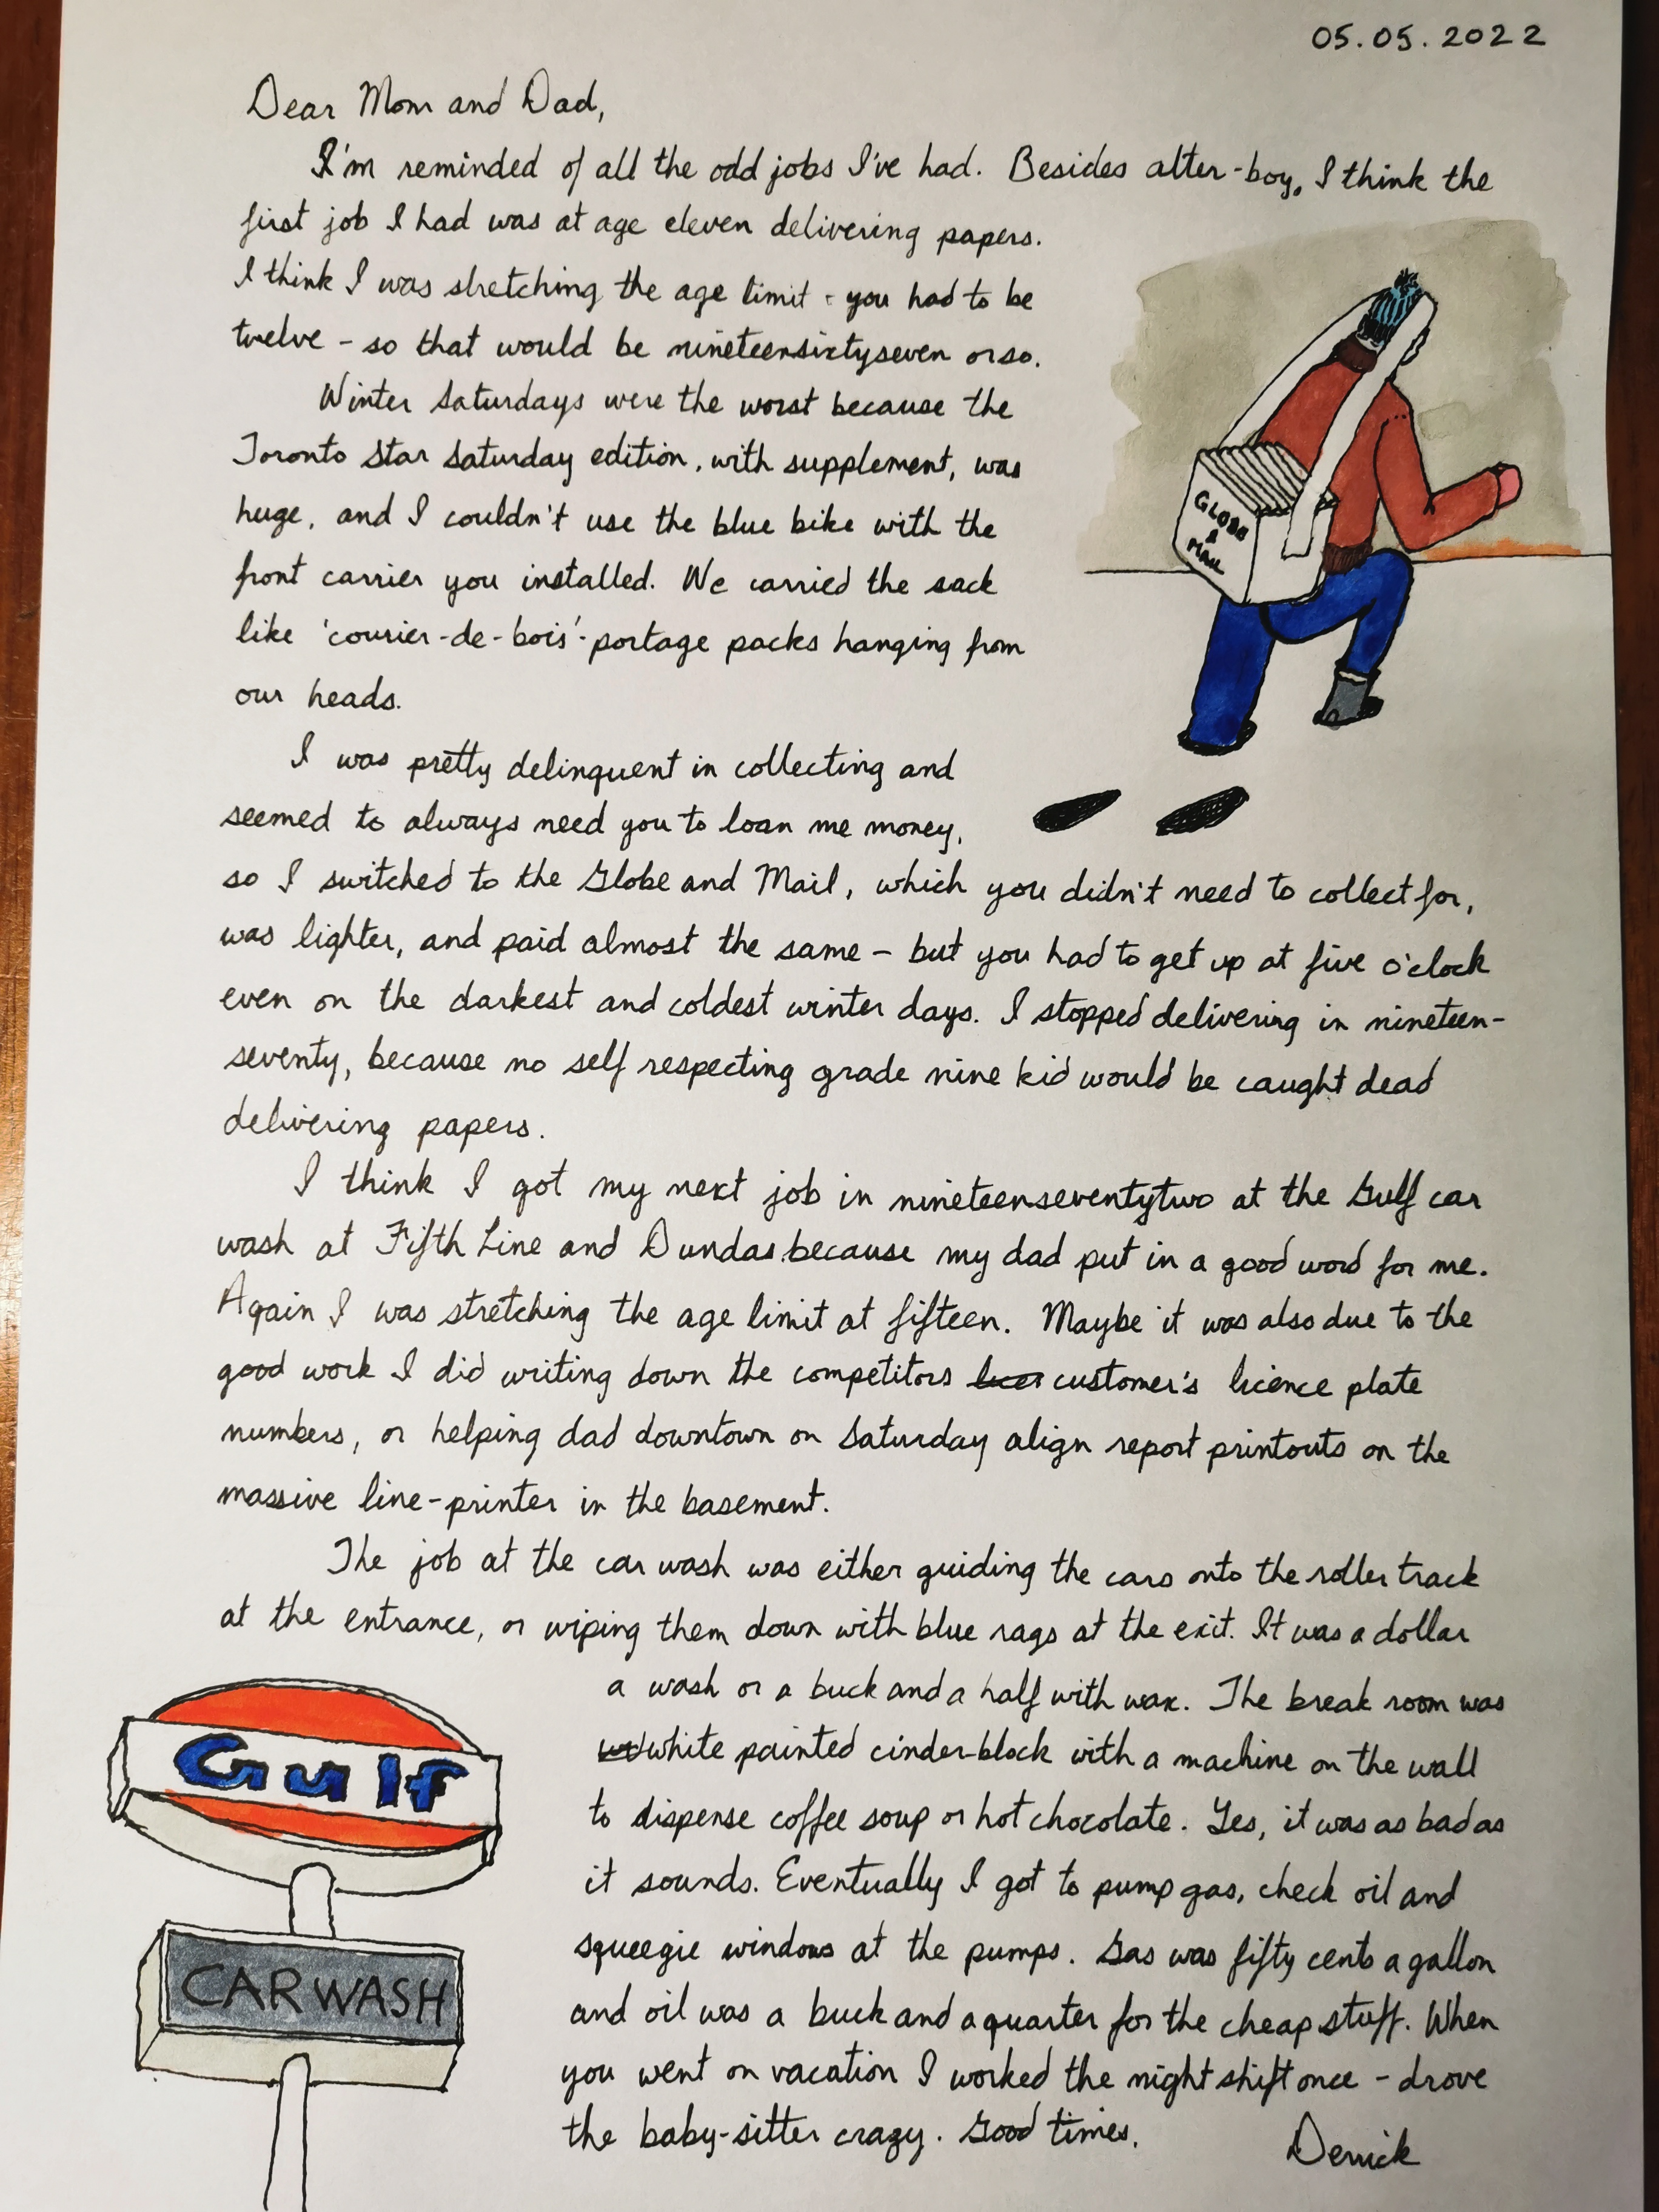 05.05.2022
Dear Mom and Dad,
I'm reminded of all the odd jobs I've had. Besides alter-boy, I think the
first job I had was at age eleven delivering papers.
I think I was stretching the age limit - you had to be
twelve - so that would be nineteensixtyseven or so.
Winter Saturdays were the worst because the
Toronto Star Saturday edition, with supplement, was
huge, and I couldn't use the blue bike with the
front carrier you installed. We carried the sack
like 'courier-de-bois'-portage packs hanging from
our heads.
GLOBE
&
MAIL
I was pretty delinquent in collecting and
seemed to always need you to loan me money,
so I switched to the Globe and Mail, which you didn't need to collect for,
was lighter, and paid almost the same - but you had to get up at five o'clock
even on the darkest and coldest winter days. I stopped delivering in nineteen-
seventy, because no self respecting grade nine kid would be caught dead
delivering papers.
I think I got my next job in nineteenseventytwo at the Gulf car
wash at Fifth Line and Dundas because my dad put in a good word for me.
Again I was stretching the age limit at fifteen. Maybe it was also due to the
good work I did writing down the competitors customer's licence plate
numbers, or helping dad downtown on Saturday align report printouts on the
massive line-printer in the basement.
The job at the car wash was either guiding the cars onto the roller track
at the entrance, or wiping them down with blue rags at the exit. It was a dollar
a wash or a buck and a half with wax. The break room was
white painted cinder-block with a machine on the wall
to dispense coffee soup or hot chocolate. Yes, it was as bad as
it sounds. Eventually I got to pump gas, check oil and
squeegie windows at the pumps. Gas was fifty cents a gallon
and oil was a buck and a quarter for the cheap stuff. When
you went on vacation I worked the night shift once - drove
the baby-sitter crazy. Good times.
Derrick
Gulf
CAR WASH